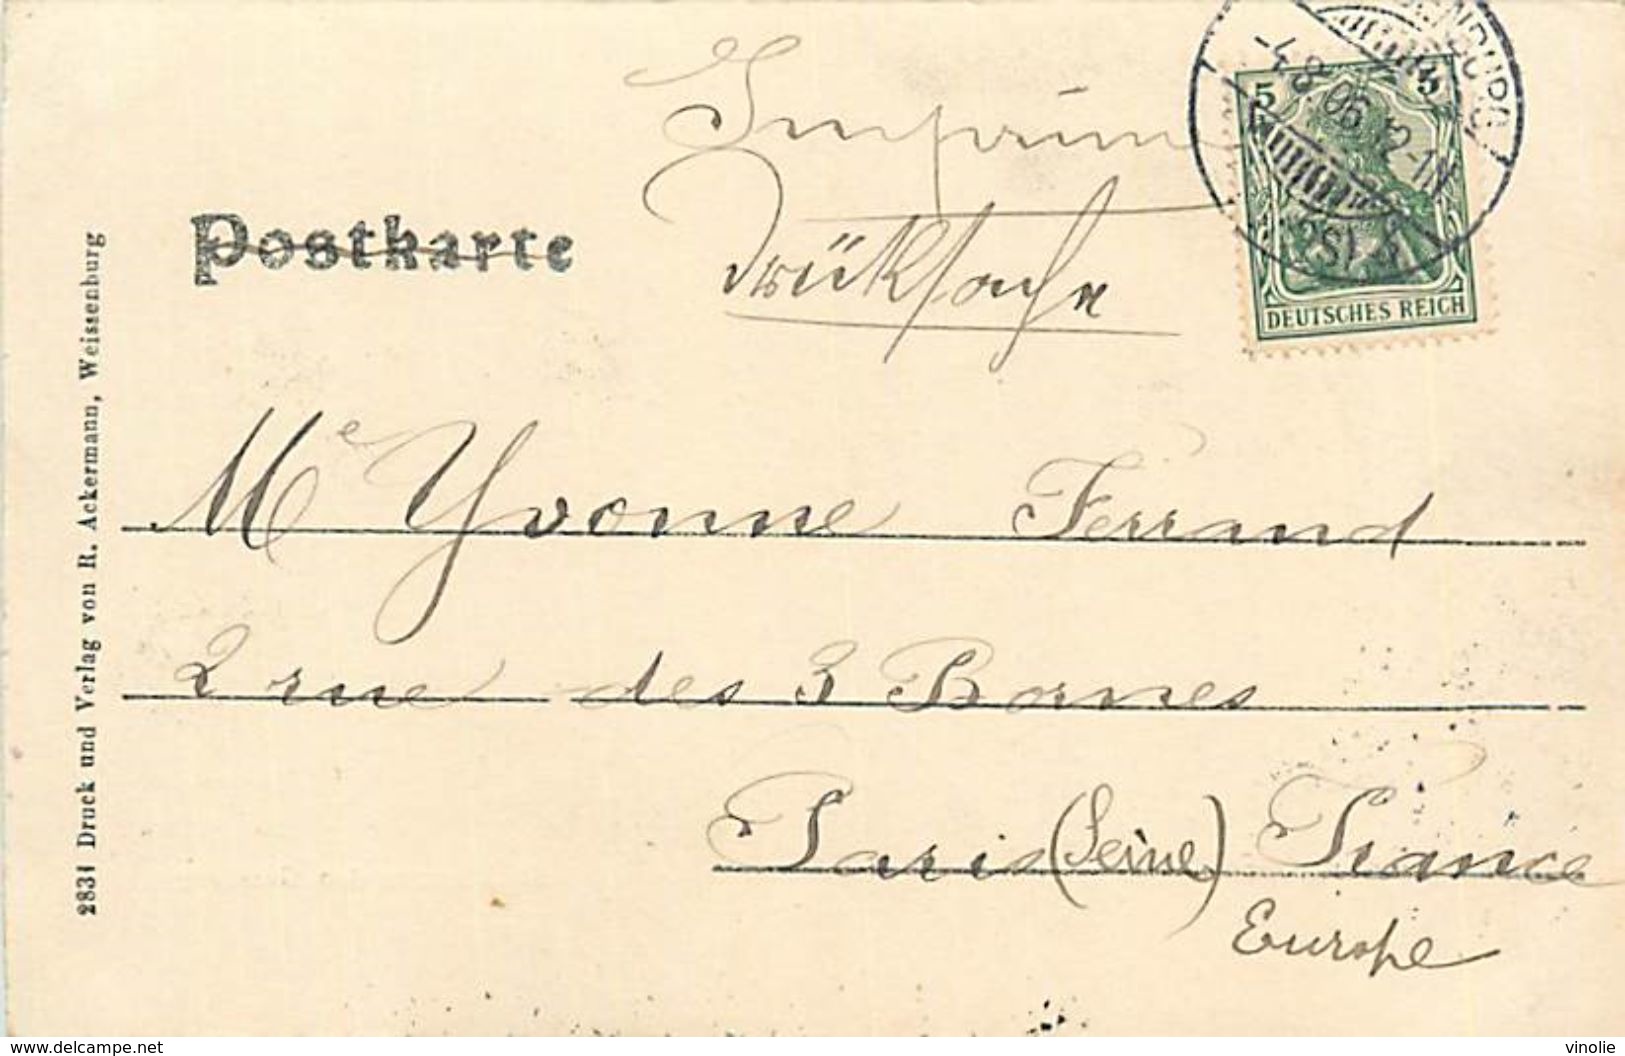 Imprimé
Drucksache
Postkarte
5 5
-4.8.06.12-1N
DEUTSCHES REICH
Me Yvonne Ferrand
2 rue des 3 Bornes
Paris (Seine) France
Europe
2831 Druck und Verlag von R. Ackermann, Weissenburg
www.delcampe.net
vinolie